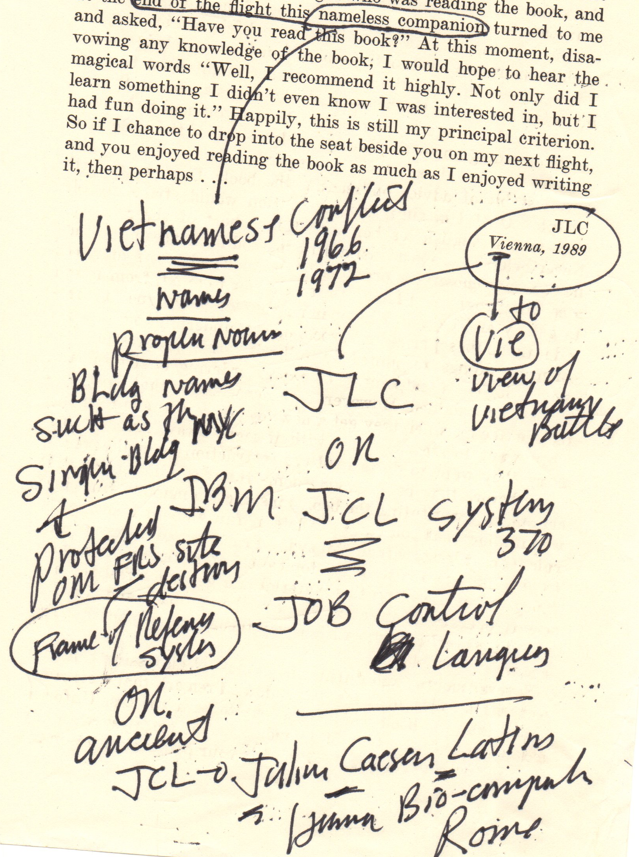 end of the flight this nameless companion turned to me
and asked, “Have you read this book?” At this moment, disa-
vowing any knowledge of the book, I would hope to hear the
magical words “Well, I recommend it highly. Not only did I
learn something I didn’t even know I was interested in, but I
had fun doing it.” Happily, this is still my principal criterion.
So if I chance to drop into the seat beside you on my next flight,
and you enjoyed reading the book as much as I enjoyed writing
it, then perhaps . . .
JLC
Vienna, 1989
Vietnamese Conflict
1966
1972
Names
proper Nouns
Bldg names
such as
NYC
Bldg
to
Vie
view of
Vietnam
Battle
JLC
OR
IBM JCL System
370
JOB Control
protected
FRS site
Frame of Reference
System
OR
ancient
JCL Julius Caesar Latins
Human Bio-computer
Rome